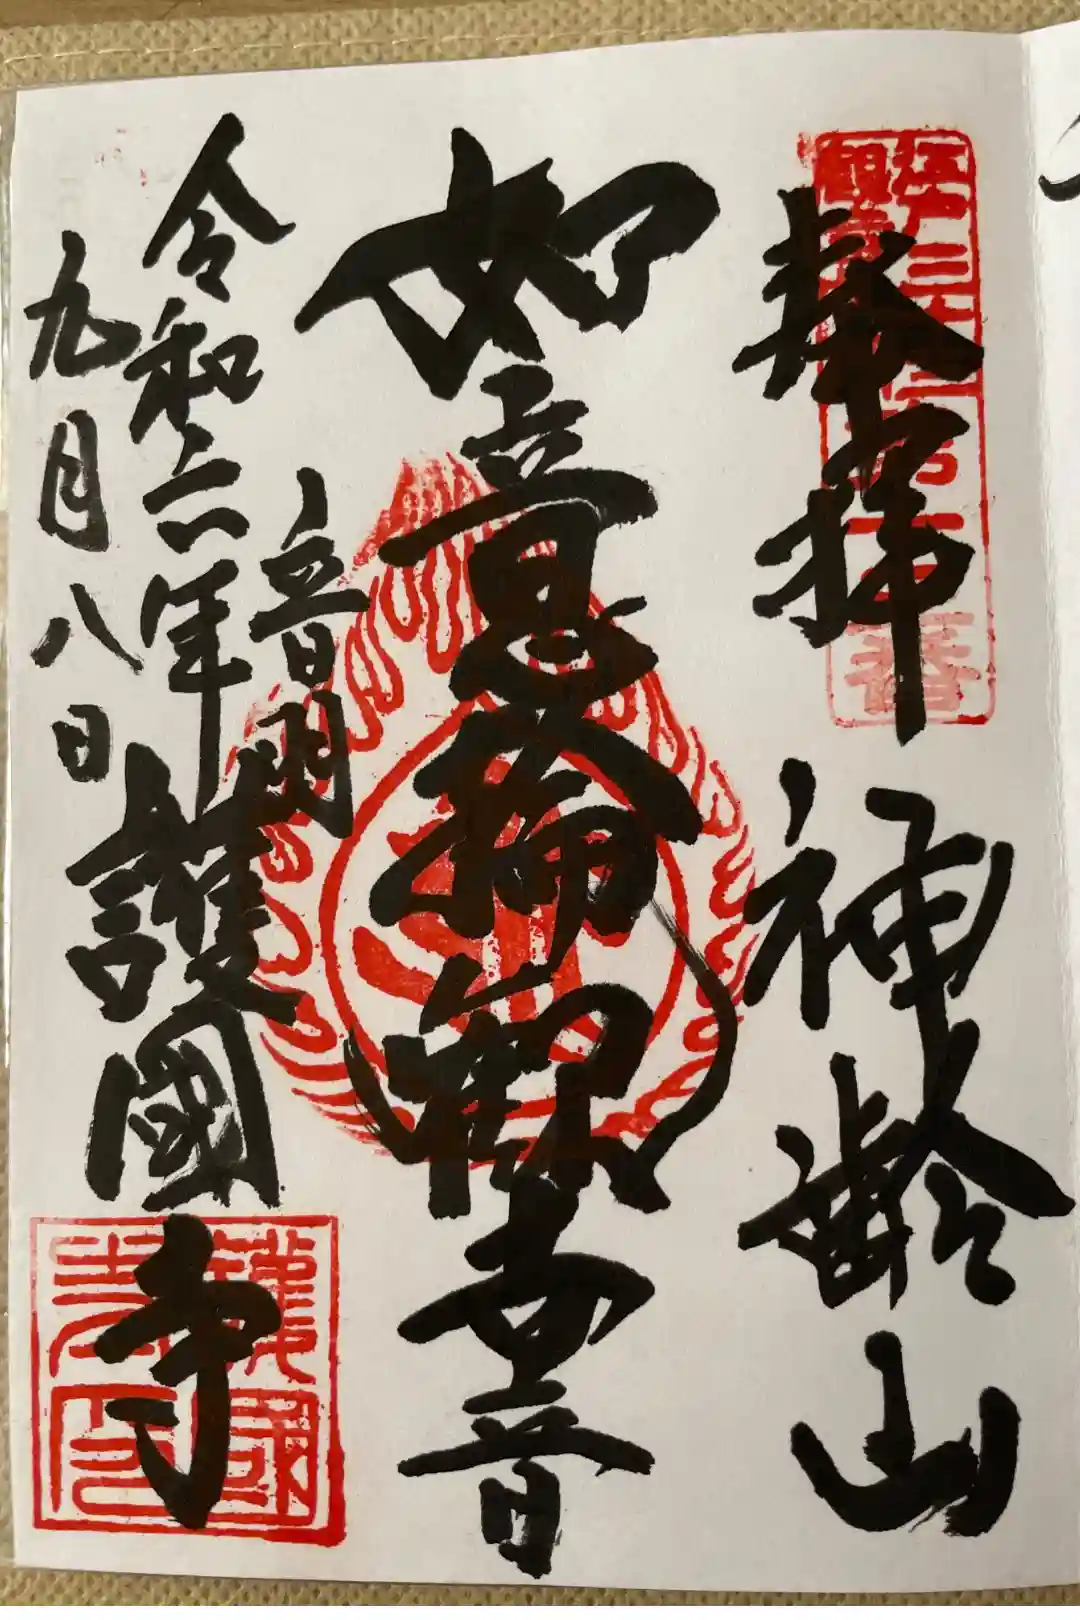 奉拝
神齢山
如意輪観世音
音羽
護國寺
令和六年
九月八日
護國寺印